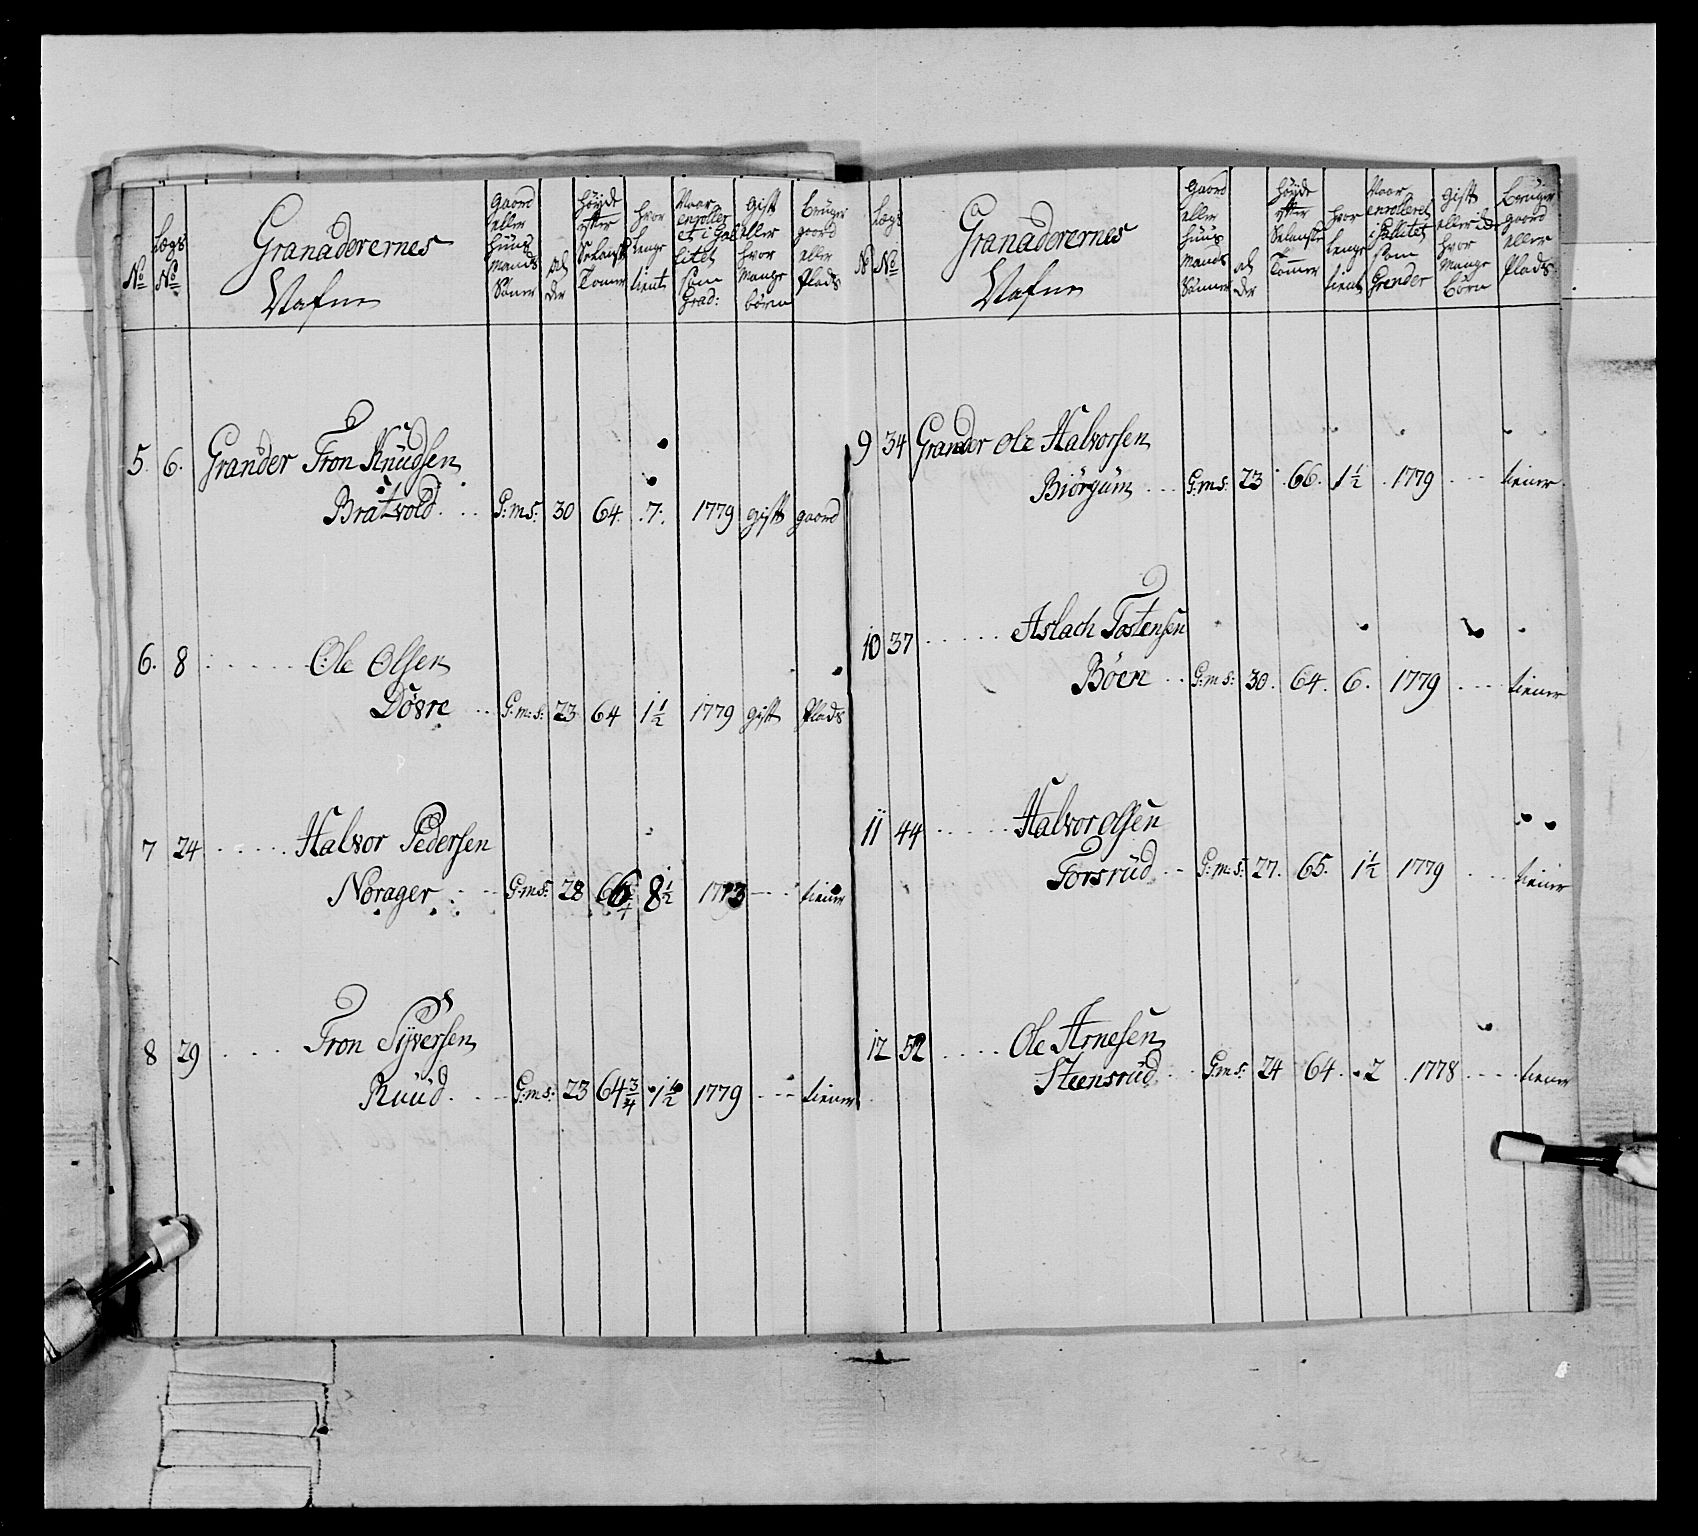 No Lægs No Granaderernes Nafne Gaord eller Huus Mands Sønner al der Høyde efter Selansk Tomer hvor lenge tient Naar enroller et i Gallitet som Grad: Gift eller hvor Mange børn bruger gaord eller Plads
5. 6. Grander Tron Knudsen
Bratvold. G:m S: 30 64. 7. 1779 gift gaord
6. 8 Ole Olsen
Dovre G:m:S: 23 64 1½ 1779 gift Plads
7 24 Halvor Pedersen
Norager G:m S: 28 8½ tiener
8 29 Tron Syversen
Ruud G:m S: 23 64¾ 1½ 1779 tiener
N Lægs No Granaderernes Nafne Gaord eller Huus Mands Sønner al der Høyde efter Selanske Tommer hvor lenge tient Naar enrolleret i Gallitet som Grender Gift eller hvor Mange Børn bruger gaord eller Plads
9 34 Grander Ole Halvorsen
Biørgum G:m S: 23 66. 1½ 1779 tiener
10 37 Aslach Tostensen
Böen G:m S: 30. 64. 6. 1779 tiener
11 44 Halvor Olsen
Forsrud G:m:S: 27. 65. 1½ 1779 tiener
12 52 Ole Arnesen
Steensrud G:m S: 24 64. 2 1778 tiener